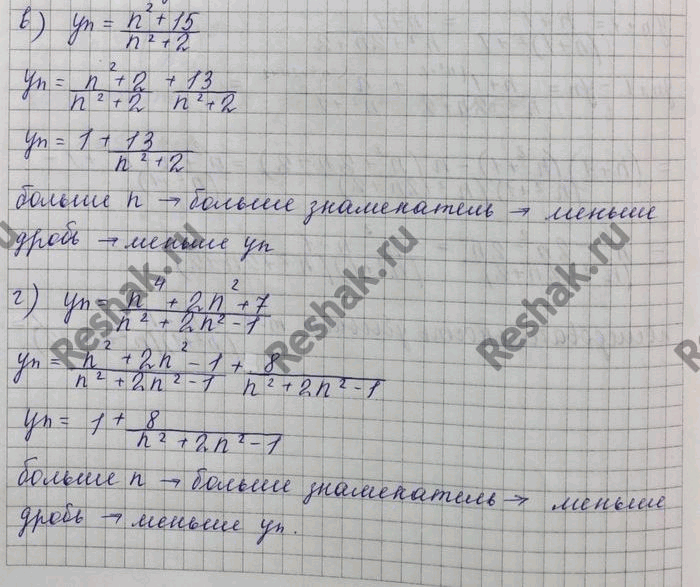 в) yn = n² + 15 / n² + 2
yn = n² + 2 / n² + 2 + 13 / n² + 2
yn = 1 + 13 / n² + 2
больше n → больше знаменатель → меньше
дробь → меньше yn
г) yn = n⁴ + 2n² + 7 / n² + 2n² - 1
yn = n² + 2n² - 1 / n² + 2n² - 1 + 8 / n² + 2n² - 1
yn = 1 + 8 / n² + 2n² - 1
больше n → больше знаменатель → меньше
дробь → меньше yn.
Reshak.ru
Reshak.ru
Reshak.ru